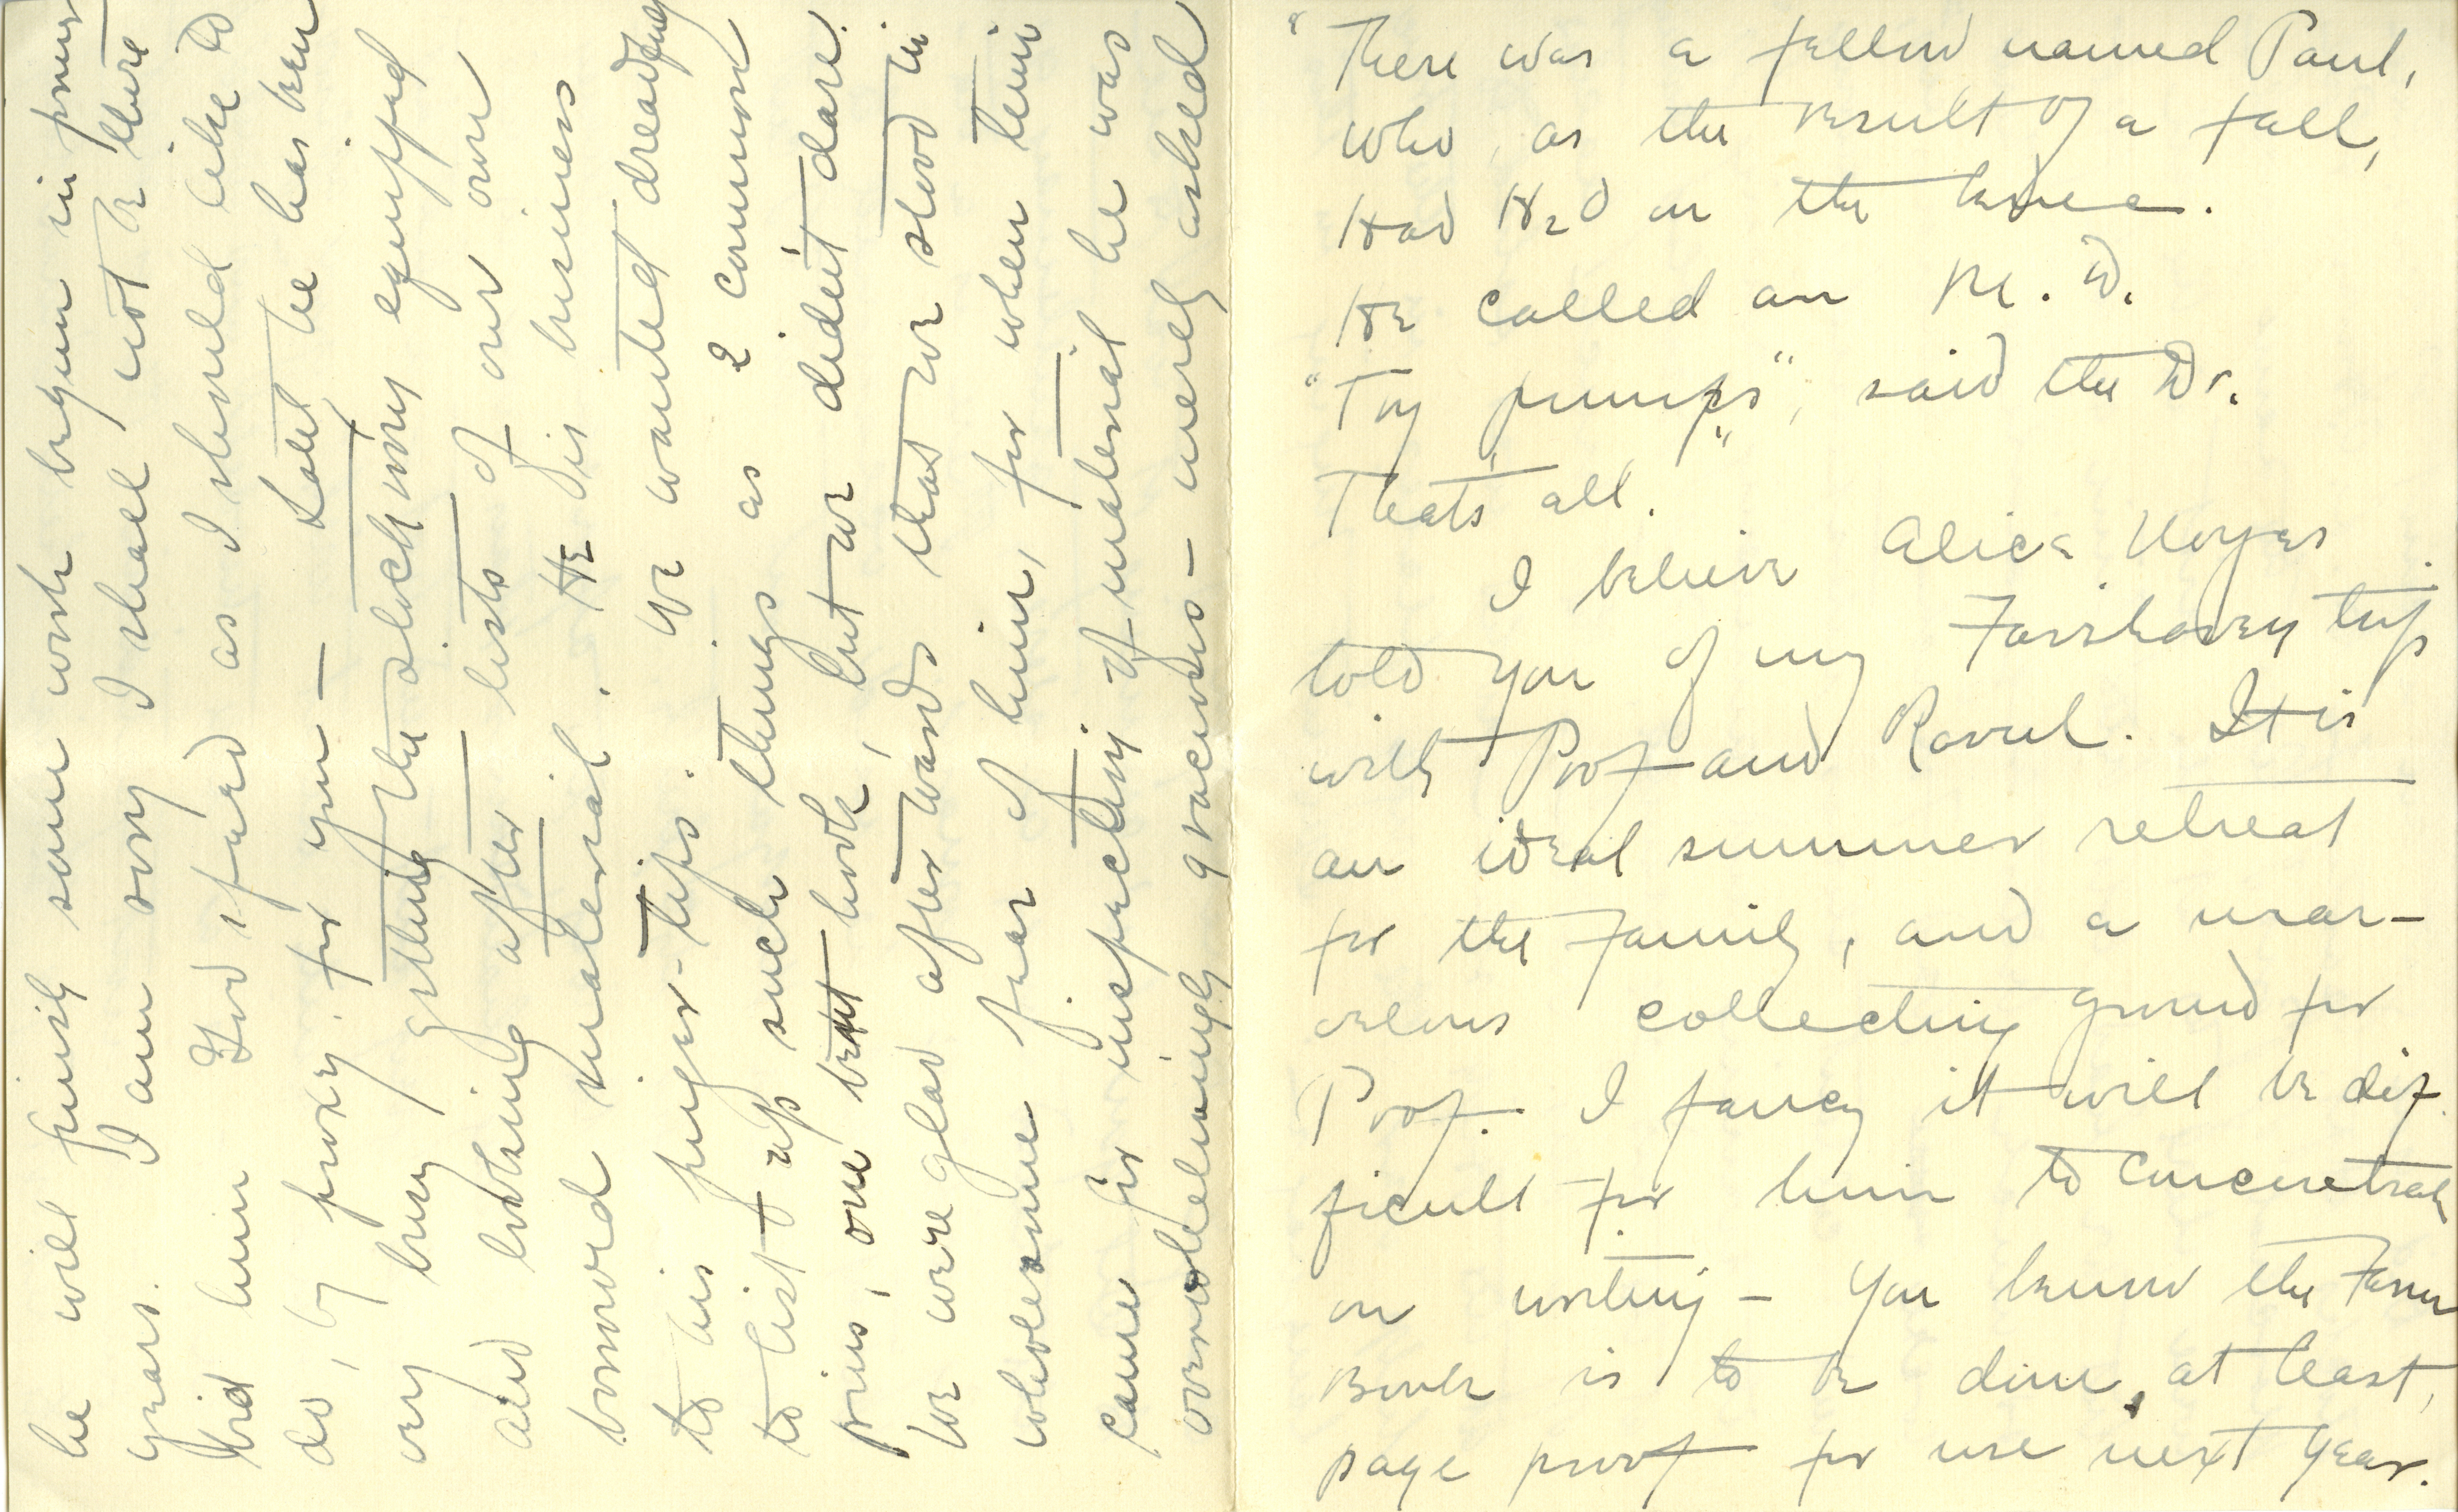 "There was a fellow named Paul,
Who, as the result of a fall,
Had H2O on the knee.
He called an M.D.
"Try pumps", said the Dr.
"That's all.
I believe Alice Noyes
told you of my Fairhaven trip
with Prof and Raoul. It is
an ideal summer retreat
for the family, and a mar-
velous collecting ground for
Prof. I fancy it will be dif-
ficult for him to concentrate
on writing – You know the Farm
Book is to be done, at least,
page proof for use next year.
he will finish some work begun in previous
years. I am sorry I shall not be there
bid him God speed as I should like to
do, by proxy. for you – Last he has been
very busy getting the stockroom equipped
and looking after lists of our own
borrowed material. He is business
to his finger-tips. We wanted dreadfully
to list up such things as 2 common
pins, one bent hook, but we didn't dare.
We were glad afterwards that we stood in
wholesome fear of him, for when time
came for inspecting of material he was
overwhelmingly gracious – merely asked